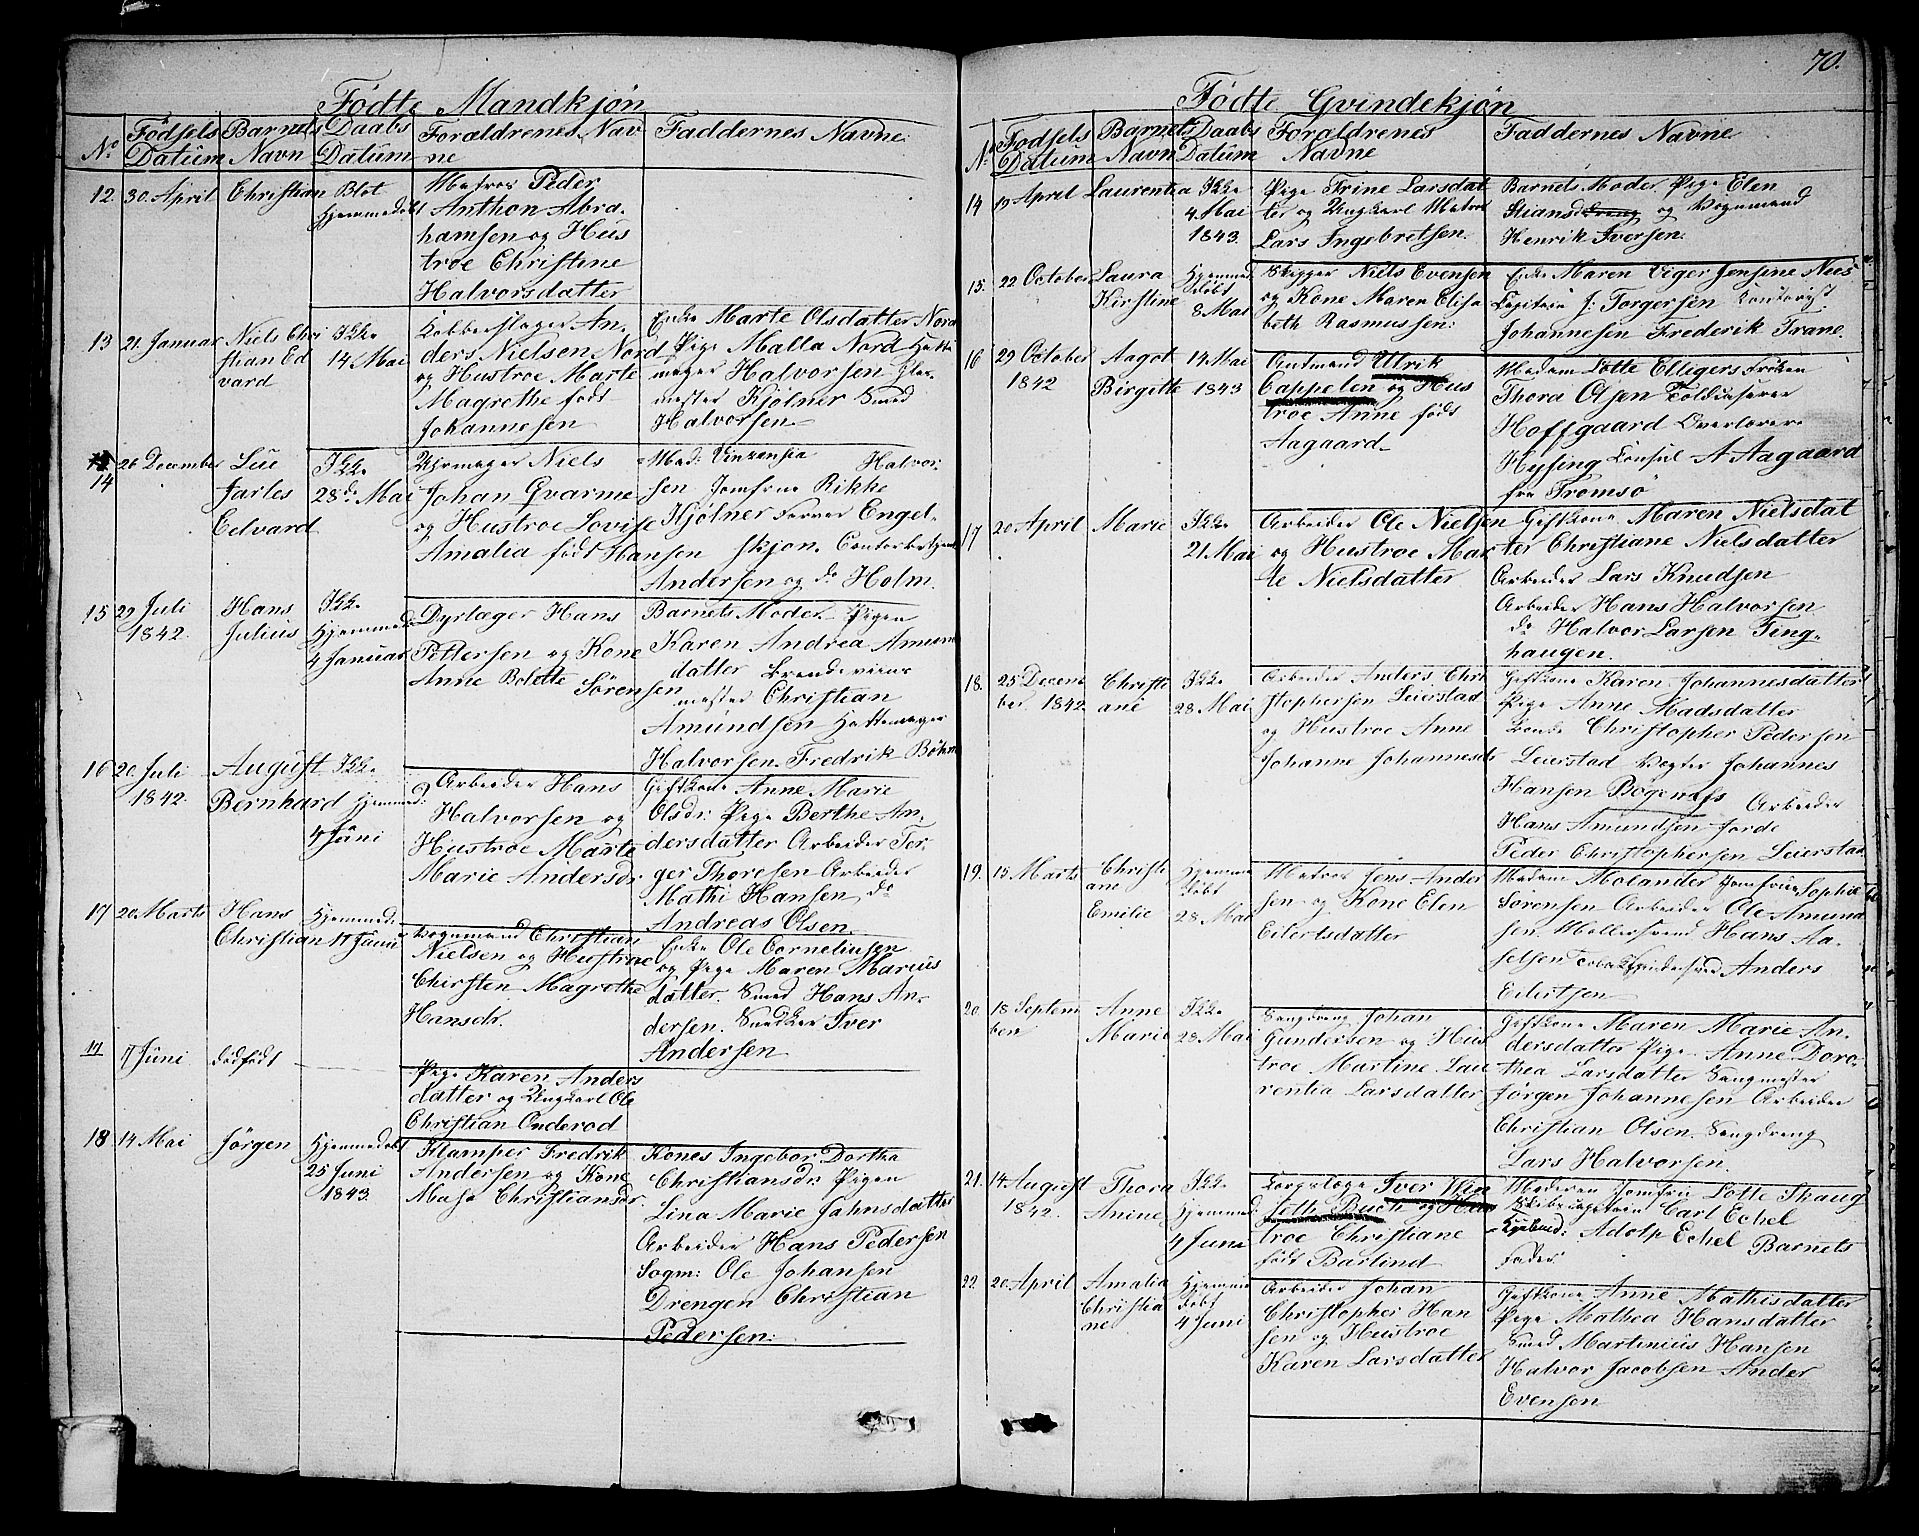 70.
Födte Mandkjön
No Födsels Datum Barnets Navn Daabs Datum Foraldrenes Navne Faddernes Navne
12. 30. April Christian Blot
Hjemmedöbt
Matros Peder
Anthon Abra
hamsen og Hus
troe Christine
Halvorsdatter
13 21. Januar Niels Chri
sthan Ed
vard
Ikke
14 Mai
Kobberslager An
ders Nielsen Nord
og Hustroe Marte
Magrethe födt
Johannesen
Enke Marte Olsdatter Nord
Pige Malla Nord Hatte
mager Halvorsen Glar
mester Kjölner Smed
Halvorsen
14 26 December Lue
Jarles
Eedvard
Ikke
28de Mai
Uhrmager Niels
Johan Qvarme
og Hustroe Lovise
Amalia födt Hansen
Mad: Vinzensia Halvor
sen Jomfrue Rikke
Kjölner Farver Engel
skjön. Contorbetjent
Andersen og do Holm.
15 29 Juli
1842.
Hans
Julius
Ikke
Hjemmed:
4 Januar
Dyrlæger Hans
Pettersen og Kone
Anne Bolette Sörensen
Barnets Moder Pigen
Karen Andrea Amund
datter Brændeviins
mester Christian
Amundsen Hattemager
Halvorsen. Fredrik Böhm
16 20 Juli
1842.
August
Bernhard
Ikke
Hjemmed:
4 Juni
Arbeider Hans
Halvorsen og
Hustroe Marte
Marie Andersdr
Giftkone Anne Marie
Olsdr: Pige Berthe An
dersdatter Arbeider Tor
ger Thoresen Arbeider
Mathi Hansen do
Andreas Olsen.
17 20 Marts Hans
Christian
Hjemmed:
11 Juni
Vognmand Christian
Nielsen og Hustroe
Chirsten Magrethe
Hansdr.
Enke Ole Corneliusen
og Pige Maren Marius
datter. Smed Hans An
dersen. Snedker Iver
Andersen
17 7 Juni dödfödt
Pige Karen Anders
datter og Ungkarl Ole
Christian Onderod
18 14 Mai Jörgen Hjemmedöbt
25 Juni
1843.
Stamper Fredrik
Andersen og Kone
Masa Christiansdr.
Kones Ingebor Dortha
Christiansdr: Pigen
Lina Marie Jahnsdatter
Arbeider Hans Pedersen
Sogm: Ole Johansen
Drengen Christian
Pedersen:
Födte Qvindekjön
No Födsels Datum Barnets Navn Daabs Datum Foraldrenes Navne Faddernes Navne
14 13 April Laurentia Ikke
4. Mai
1843.
Pige Trine Larsdat
ter og Ungkarl Matros
Lars Ingebretsen.
Barnets Moder Pige Elen
Stiansd og Vognmand
Henrik Iversen.
15. 22 October Laura
Kirstine
Hjemme
döbt
8 Mai
Skipper Niels Evensen
og Kone Maren Elisa
beth Rasmussen:
Enke Maren Viger Jensine Niels
Capitain J: Torgersen Contorist
Johannesen Frederik Trane
16 29 October
1842
Aagot
Birgitte
14. Mai
1843
Amtmand Ulrik
Cappelen og Hus
troe Anne födt
Aagaard
Madam Lotte Elligers Fröken
Thora Olsen Toldinserer
Hoffgaard Overlærer
Hysing Consul A Aagaard
fra Tromsö
17 20 April Marie Ikke
21. Mai
Arbeider Ole Nielsen
og Hustroe Mar
te Nielsdatter
Giftkone Maren Nielsdat
ter Christiane Nielsdatter
Arbeider Lars Knudsen
Arbeider Hans Halvorsen
do Halvor Larsen Ting
haugen.
18. 25 Decem
ber 1842.
Christi
ane
Ikke
28 Mai
Arbeider Anders Chri
stophersen Leierstad
og Hustroe Anne
Johanne Johannesdr
Giftkone Karen Johannesdatter
Pige Anne Madsdatter
Bonde Christopher Pedersen
Leierstad Vogter Johannes
Hansen Bogenæs Arbeider
Hans Amundsen Jorde
Peder Christophersen Leierstad
19. 15 Marts Christi
ane
Emilie
Hjemme
döbt
28 Mai
Matros Jens Ander
sen og Kone Elen
Eilertsdatter
Madam Molander Jomfrue Sophie
Sörensen Arbeider Ole Amund
sen. Möllersvend Hans Aa
selsen Anders
Eilertsen
20. 18 Septem
ber
Anne
Marie
Ikke
28 Mai
Saugdreng Johan
Gundersen og Hus
troe Martine Lau
rentia Larsdatter
Giftkone Maren Marie An
dersdatter Pige Anne Doro
thea Larsdatter Saugmester
Jörgen Johannesen Arbeider
Christian Olsen. Saugdreng
Lars Halvorsen.
21. 14 August
1842.
Thora
Anine
Ikke
Hjemmed:
4 Juni
Iver Elen
Buch og Hus
troe Christiane
födt Barlind
Moderen Jomfru Lotte Skaug
Skibscapitain Carl Eckel
Adolp Eckel Barnets
Fader
22. 20. April Amalia
Christia
ne
Hjemme
döbt
4 Juni
Arbeider Johan
Christopher Han
sen og Hustroe
Karen Larsdatter
Giftkone Anne Mathisdatter
Pige Mathea Hansdatter
Smed Martinius Hansen
Halvor Jacobsen Ander
Evensen